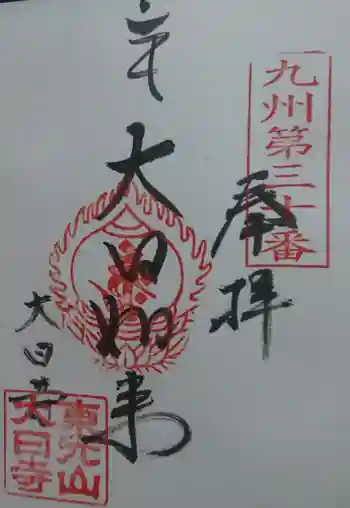 九州第三十番
奉拝
大日如来
大日寺
東光山
大日寺